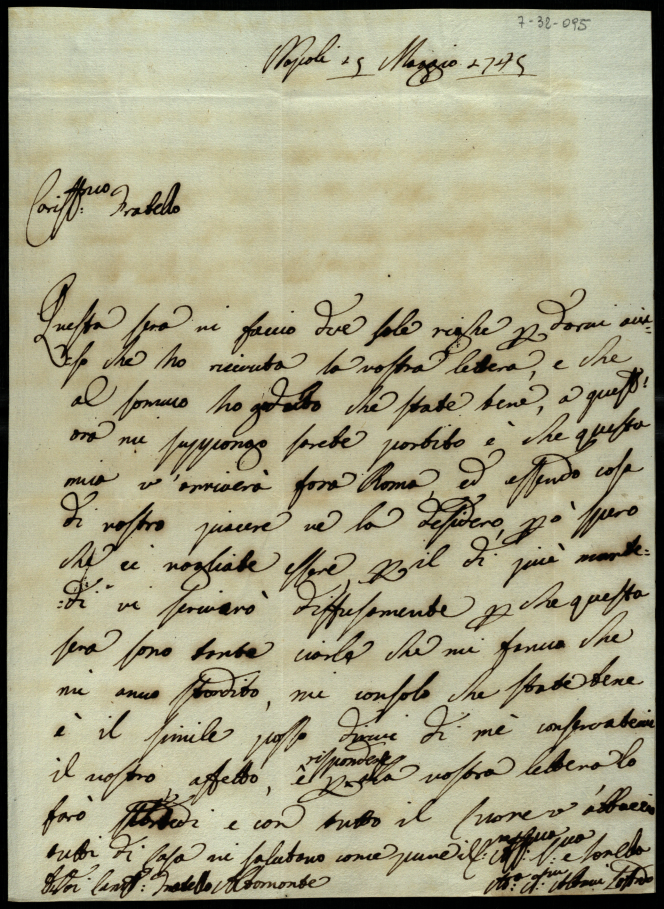 7-32-095
Napoli 25 Maggio 1745
Cariss.mo Fratello
Questa sera vi faccio due sole righe p darvi avi=
=so che ho ricevuta la vostra lettera, e che
al sommo ho goduto che state bene, a quest'
ora mi suppongo sarete partito è che questa
mia v'arriverà fora Roma, ed essendo cosa
di vostro piacere ve la desidero, pò spero
che ci vogliate essere p il di più marte=
=di vi scriverò diffusamente p che questa
sera sono tante ciarle che mi fanno che
mi anno stordito, mi consolo che state bene
è il simile posso dirvi di mè conservatemi
il vostro affetto, è rispondere p alla vostra lettera lo
farò Martedi e con tutto il Cuore v'abbraccio
tutti di Casa vi salutano come pure il
di Voi Fratello Altomonte